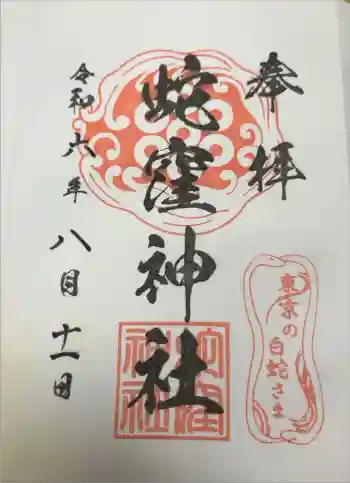 奉拝
東京の白蛇さま
蛇窪神社
蛇窪神社
令和六年八月十一日